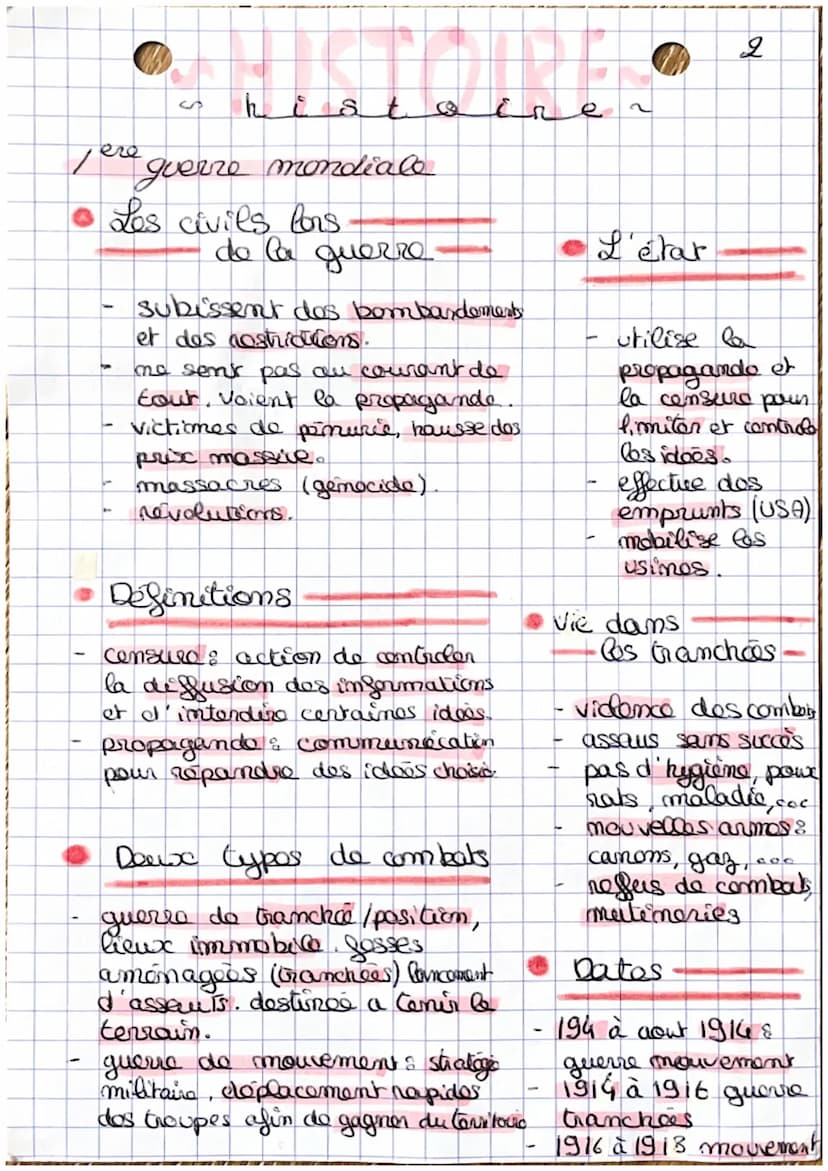 2
~ HISTOIRE ~
~ histoire ~
1ere guerre mondiale
Les civils lors
de la guerre
- subissent des bombardements
et des restrictions.
- ne sont pas au courant de
tout. voient la propagande.
- victimes de pénurie, hausse des
prix massive.
- massacres (génocide).
- révolutions.
Définitions
- censure : action de controler
la diffusion des informations
et d'interdire certaines idées.
- propagande : communication
pour répandre des idées choisie
Deux types de combats
- guerre de tranchée / position,
lieux immobile. fosses
aménagées (tranchées) lancement
d'assauts. destinée a tenir le
terrain.
- guerre de mouvement : stratégie
militaire, déplacement rapides
des troupes afin de gagner du territoire
L'état
- utilise la
propagande et
la censure pour
limiter et controle
les idées.
- effectue des
emprunts (USA)
- mobilise les
usines.
Vie dans
les tranchées
- violence des combats
- assaus sans succès
- pas d'hygiène, poux
rats, maladie, ...
- nouvelles armes :
canons, gaz, ...
- reffus de combats,
mutineries
Dates
- 194 à aout 1914 :
guerre mouvement
- 1914 à 1916 guerre
tranchées
- 1916 à 1918 mouvement